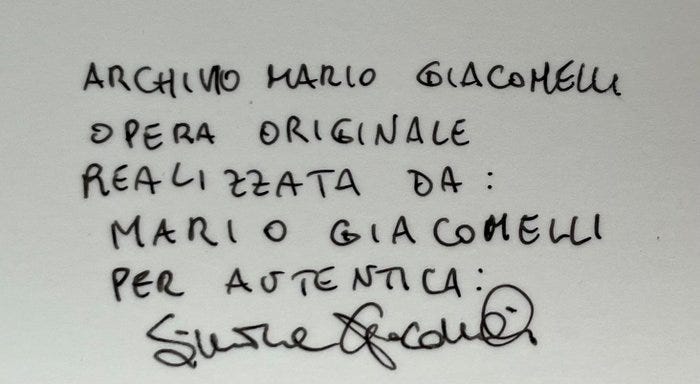 ARCHIVIO MARIO GIACOMELLI
OPERA ORIGINALE
REALIZZATA DA:
MARIO GIACOMELLI
PER AUTENTICA:
Simone Giacomelli